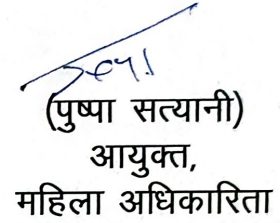 (पुष्पा सत्यानी)
आयुक्त,
महिला अधिकारिता